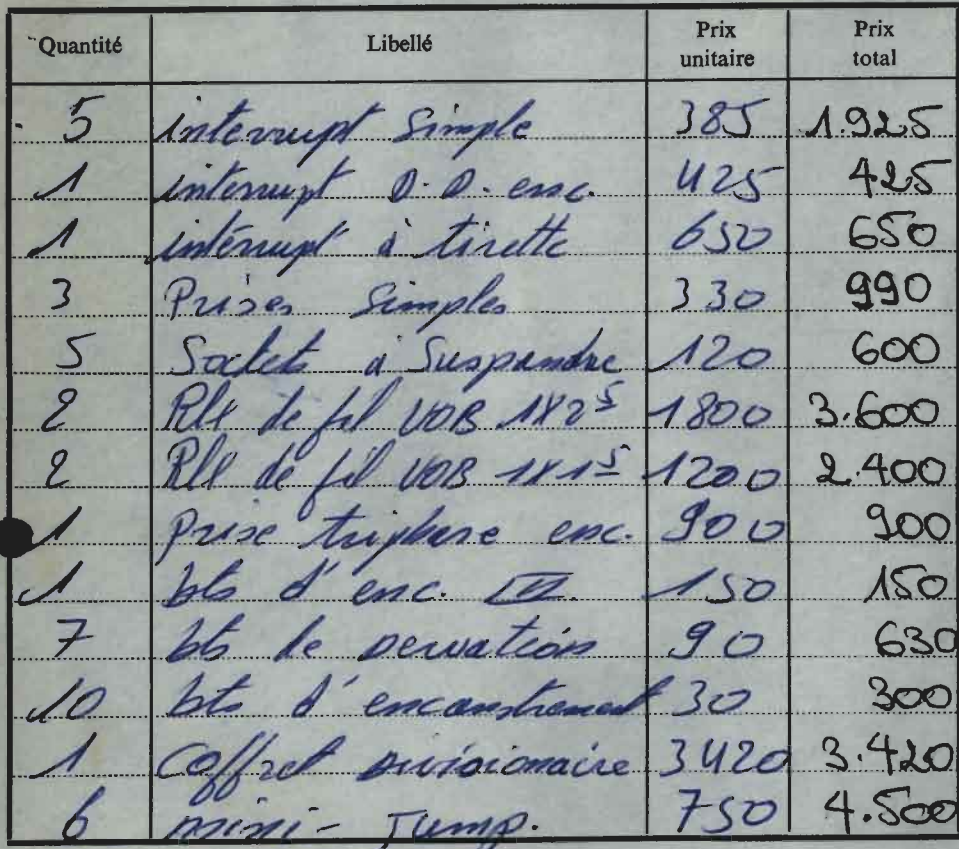 Quantité Libellé Prix unitaire Prix total
5 interrupt Simple 385 1.925
1 interrupt D.D. enc. 425 425
1 interrupt à tirette 650 650
3 Prises Simples 330 990
5 Sockets à Suspendre 120 600
2 Rlx de fil VOB 1x2⁵ 1800 3.600
2 Rlx de fil VOB 1x1⁵ 1200 2.400
1 Prise triphase enc. 900 900
1 bts d'enc. 150 150
7 bts de derivation 90 630
10 bts d'encanstrement 30 300
1 Coffret divisionaire 3420 3.420
6 mini-Jump. 750 4.500